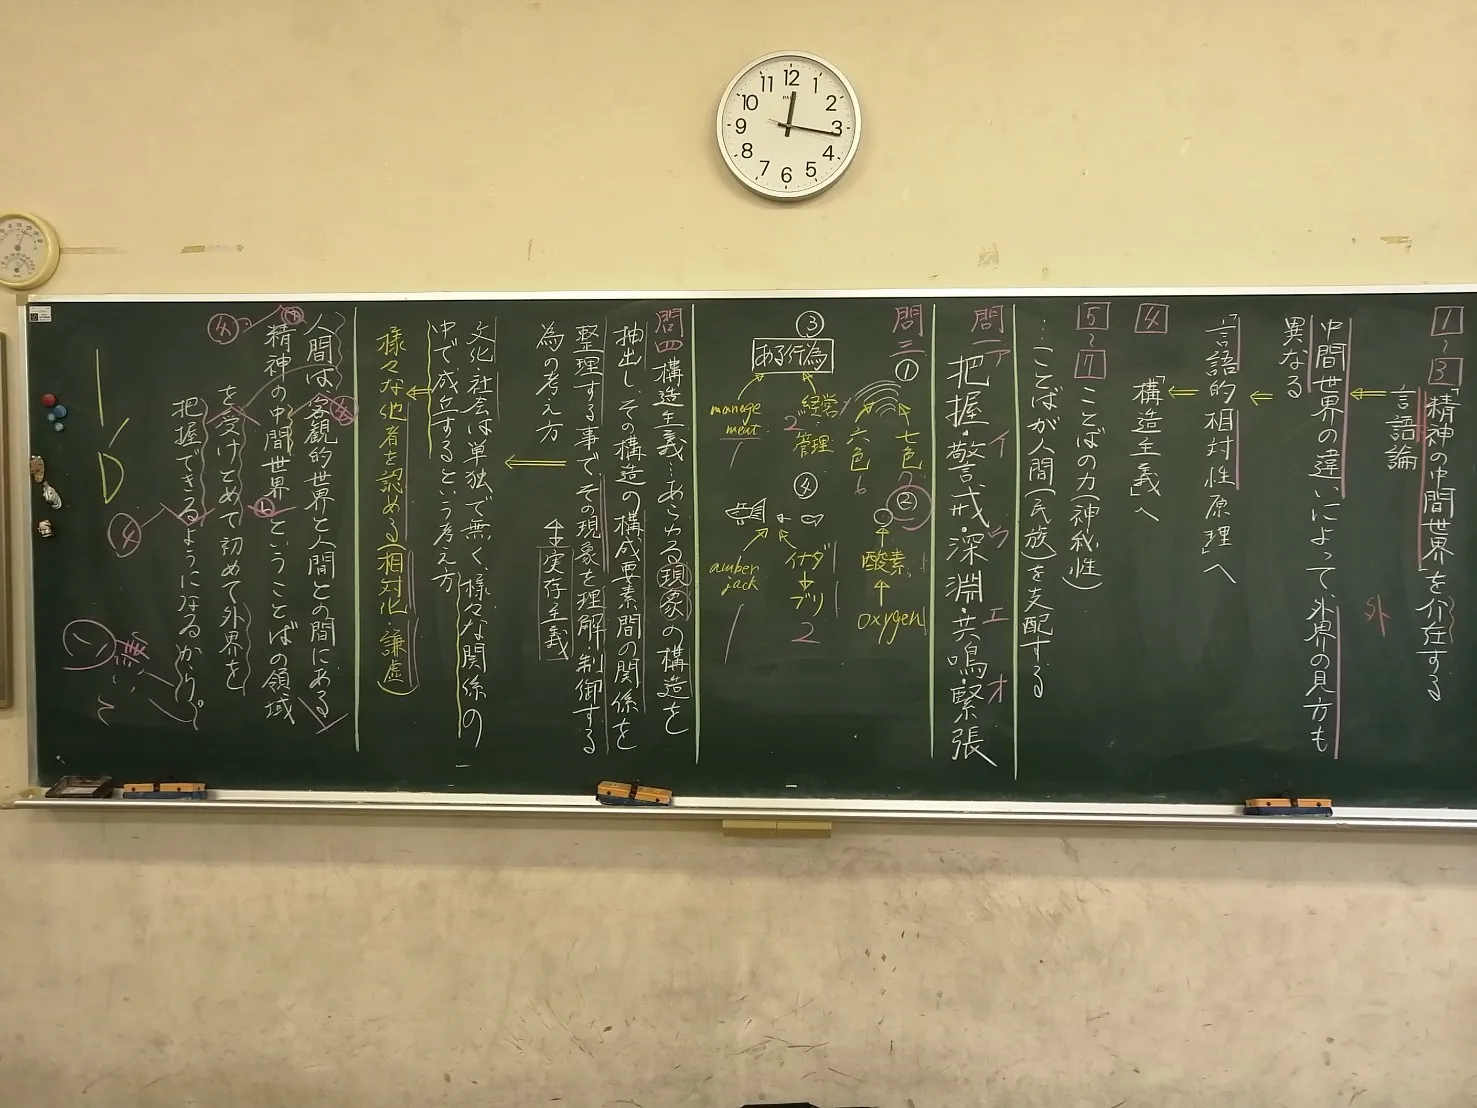 1~3「精神の中間世界」を介在する
言語論
外
中間世界の違いによって、外界の見方も
異なる
「言語的相対性原理」へ
4「構造主義」へ
5~7 ことばの力(神秘性)
…ことばが人間(民族)を支配する
問一 ア把握・イ警戒・ウ深淵・エ共鳴・オ緊張
問三
①
七色
六色
6
②
酸素
oxygen
③
ある行為
経営
管理
2
manage
ment
1
④
イナダ
ブリ
2
amber
jack
1
問四 構造主義…あらゆる現象の構造を
抽出し、その構造の構成要素間の関係を
整理する事で、その現象を理解・制御する
為の考え方
実存主義
文化・社会は単独で無く、様々な関係の
中で成立するという考え方
様々な他者を認める(相対化・謙虚)
人間は客観的世界と人間との間にある
精神の中間世界ということばの領域
を受けとめて初めて外界を
把握できるようになるから。
④
④
I'D
12
1
2
3
4
5
6
7
8
9
10
11